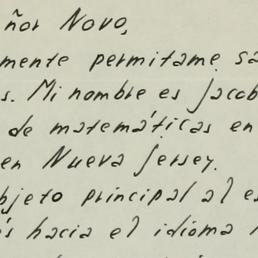 ñor Novo,
mente permitame sa
s. Mi nombre es Jacob
de matemáticas en
en Nueva Jersey.
bjeto principal al es
és hacia el idioma n